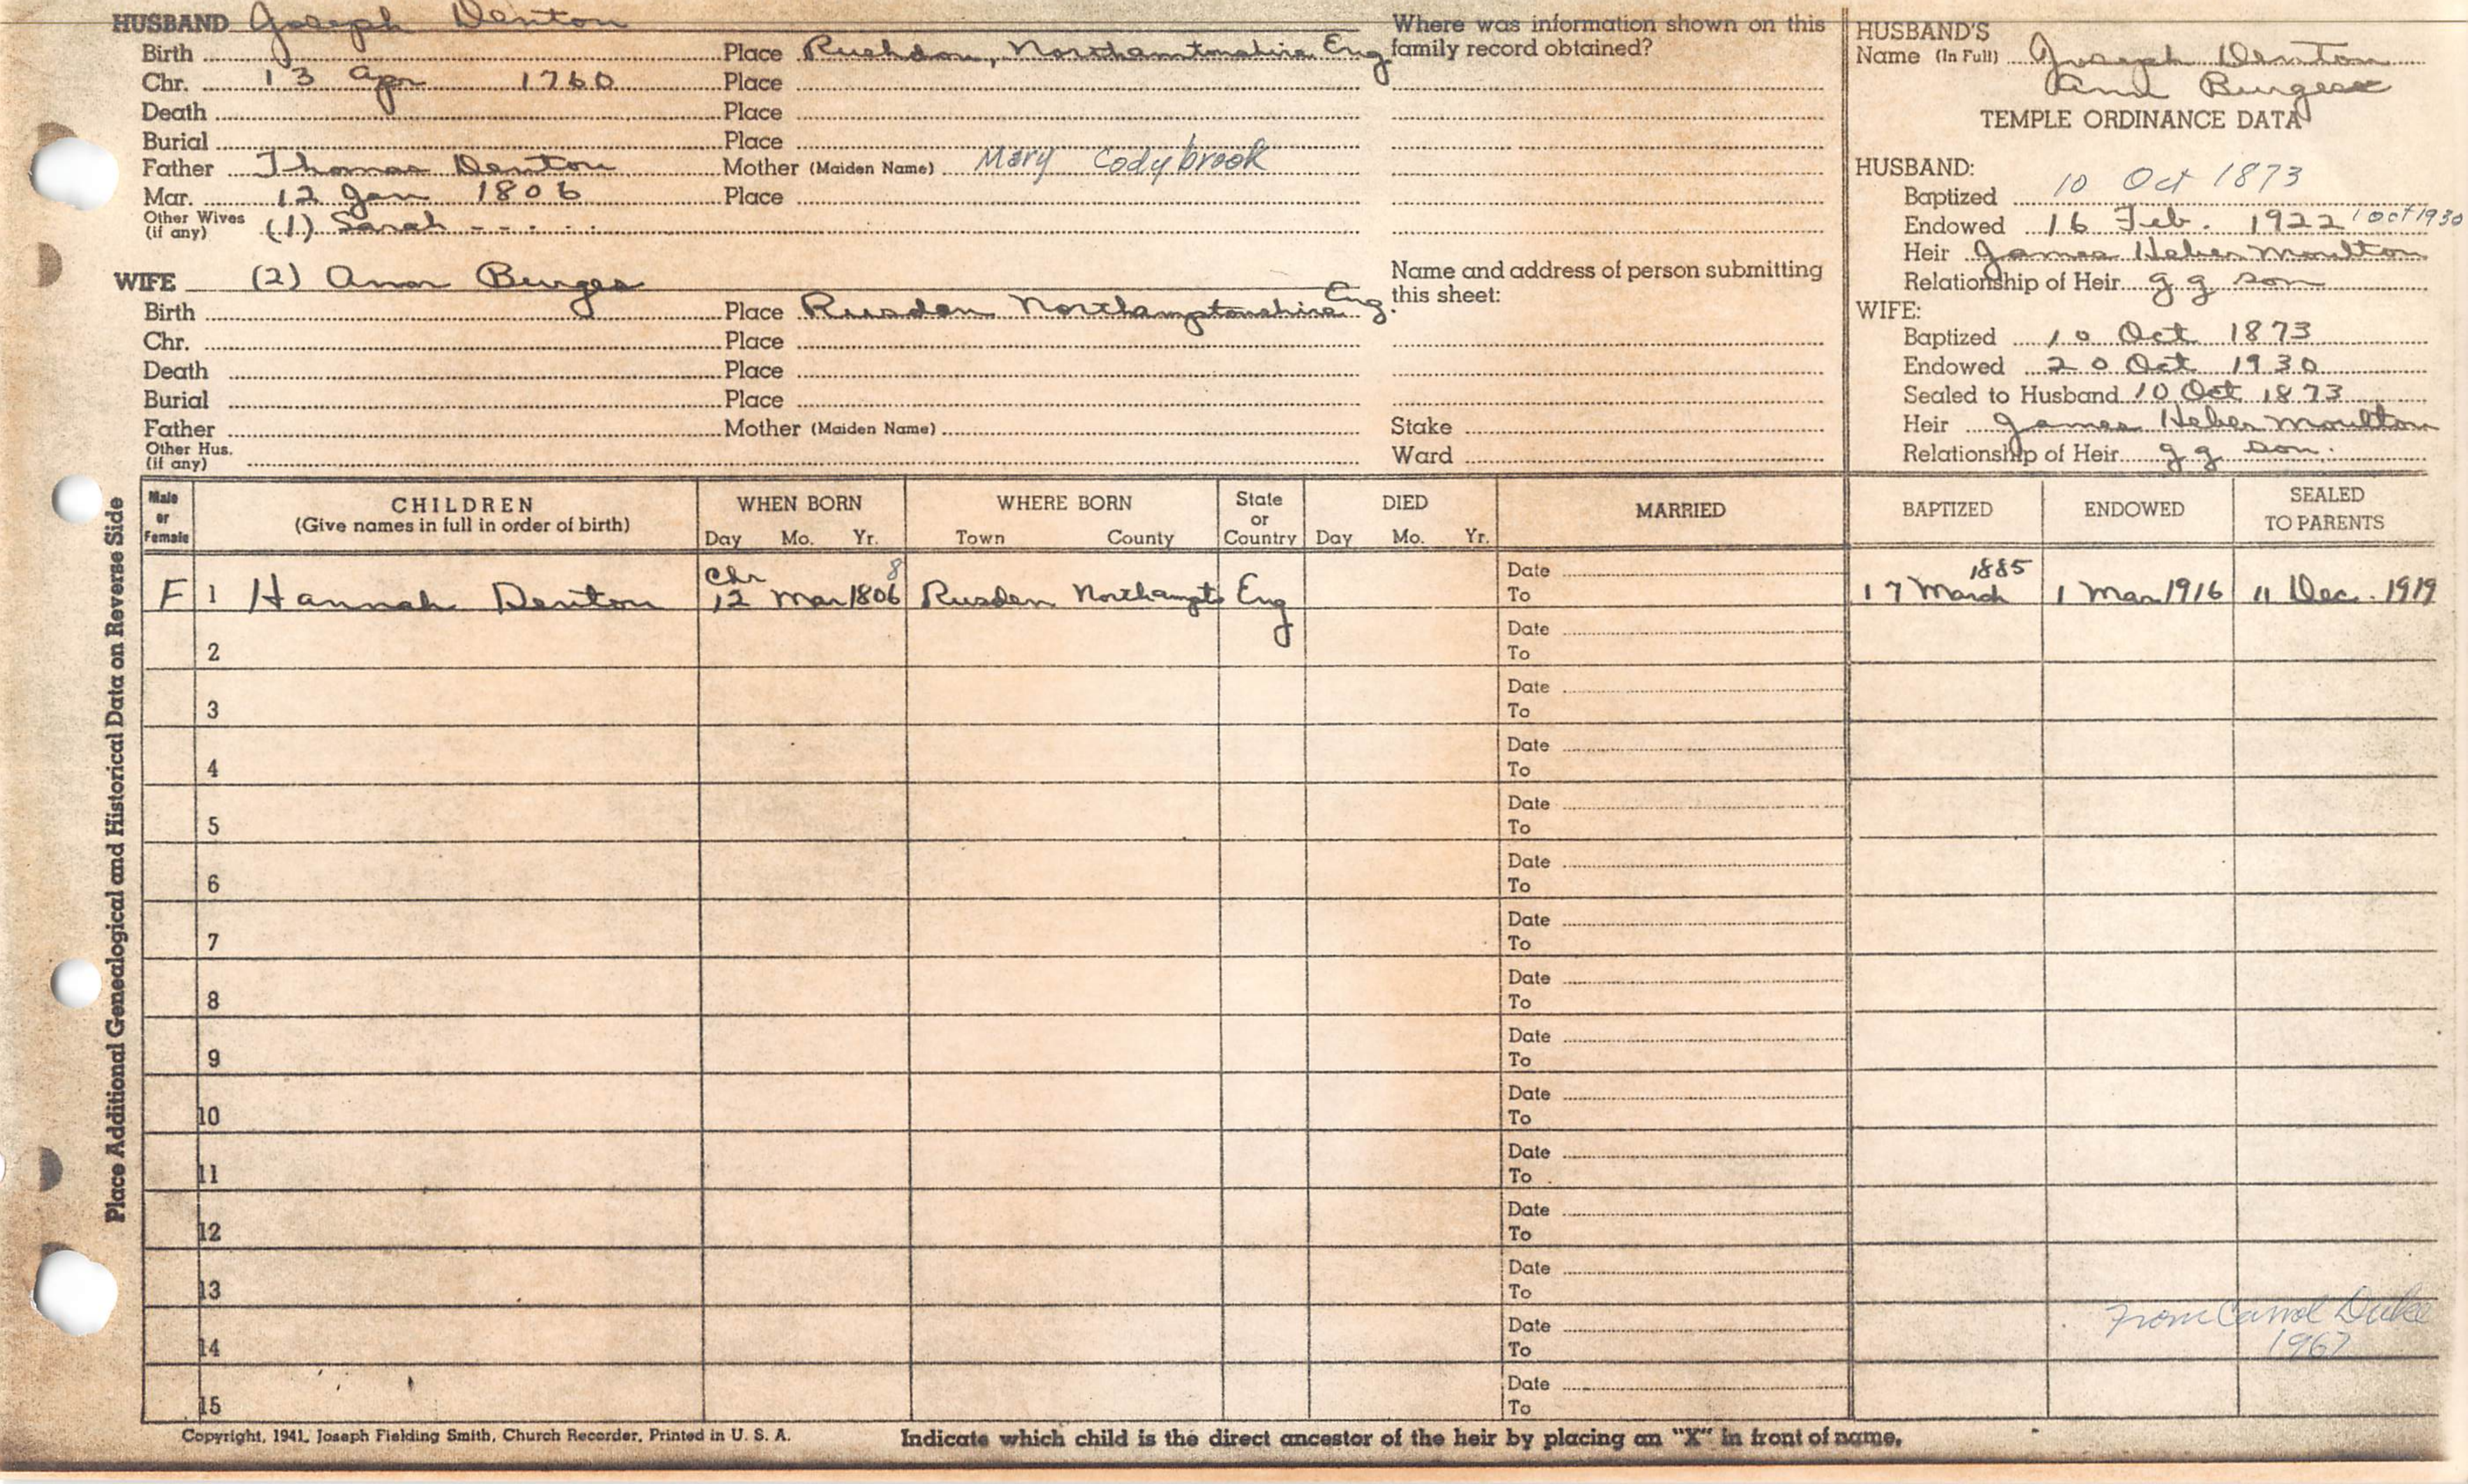 HUSBAND Joseph Denton
Birth Place Rushdon, Northamtonshire Eng
Chr. 13 Apr 1760 Place
Death Place
Burial Place
Father Thomas Denton Mother (Maiden Name) Mary Codybrook
Mar. 12 Jan 1806 Place
Other Wives (if any) (1) Sarah - - . . .
WIFE (2) Ann Burges
Birth Place Rusden Northamptonshire Eng.
Chr. Place
Death Place
Burial Place
Father Mother (Maiden Name)
Other Hus. (if any)
Where was information shown on this
family record obtained?
Name and address of person submitting
this sheet:
Stake
Ward
HUSBAND'S
Name (In Full) Joseph Denton
Ann Burgess
TEMPLE ORDINANCE DATA
HUSBAND:
Baptized 10 Oct 1873
Endowed 16 Feb. 1922 1 Oct 1930
Heir James Heber Moulton
Relationship of Heir g g son
WIFE:
Baptized 10 Oct 1873
Endowed 20 Oct 1930
Sealed to Husband 10 Oct 1873
Heir James Heber Moulton
Relationship of Heir g g son.
Place Additional Genealogical and Historical Data on Reverse Side
Male or Female
CHILDREN
(Give names in full in order of birth)
WHEN BORN
Day Mo. Yr.
WHERE BORN
Town County
State or Country
DIED
Day Mo. Yr.
MARRIED
BAPTIZED
ENDOWED
SEALED TO PARENTS
Chr 8 Date 1885
F 1 Hannah Denton 12 Mar 1806 Rusden Northampt Eng To 17 March 1 Mar 1916 11 Dec. 1919
Date
2 To
Date
3 To
Date
4 To
Date
5 To
Date
6 To
Date
7 To
Date
8 To
Date
9 To
Date
10 To
Date
11 To
Date
12 To
Date
13 To
Date From Carrol Duke
14 To 1967
Date
15 To
Copyright, 1941, Joseph Fielding Smith, Church Recorder, Printed in U. S. A.
Indicate which child is the direct ancestor of the heir by placing an "X" in front of name.